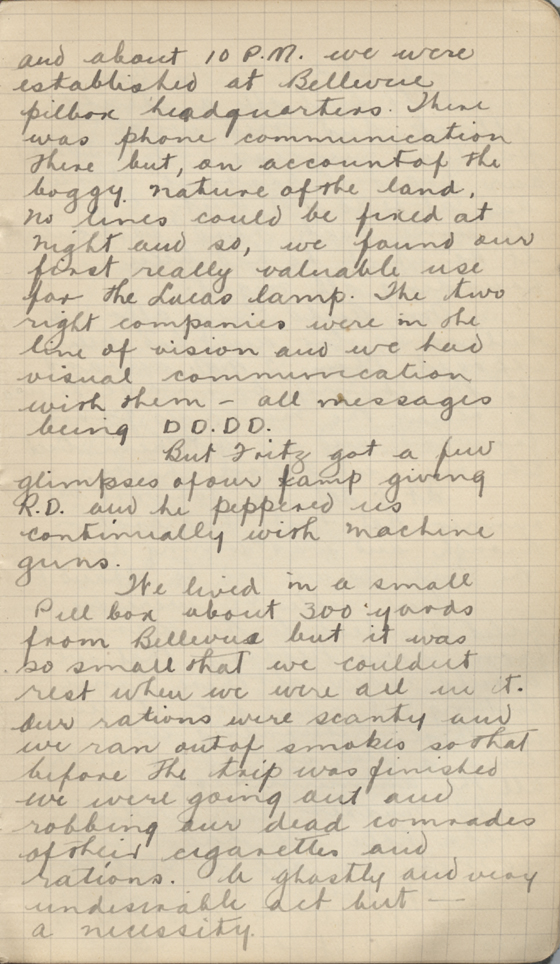 and about 10 P.M. we were
established at Bellevue
pilbox headquarters. There
was phone communication
there but, on account of the
boggy nature of the land,
no lines could be fixed at
night and so, we found our
first really valuable use
for the Lucas lamp. The two
right companies were in the
line of vision and we had
visual communication
with them – all messages
being DD.DD.
But Fritz got a few
glimpses of our lamp giving
R.D. and he peppered us
continually with machine
guns.
We lived in a small
Pill box about 300 yards
from Bellevue but it was
so small that we couldnt
rest when we were all in it.
Our rations were scanty and
we ran out of smokes so that
before the trip was finished
we were going out and
robbing our dead comrades
of their cigarettes and
rations. A ghastly and very
undesirable act but —
a necessity.